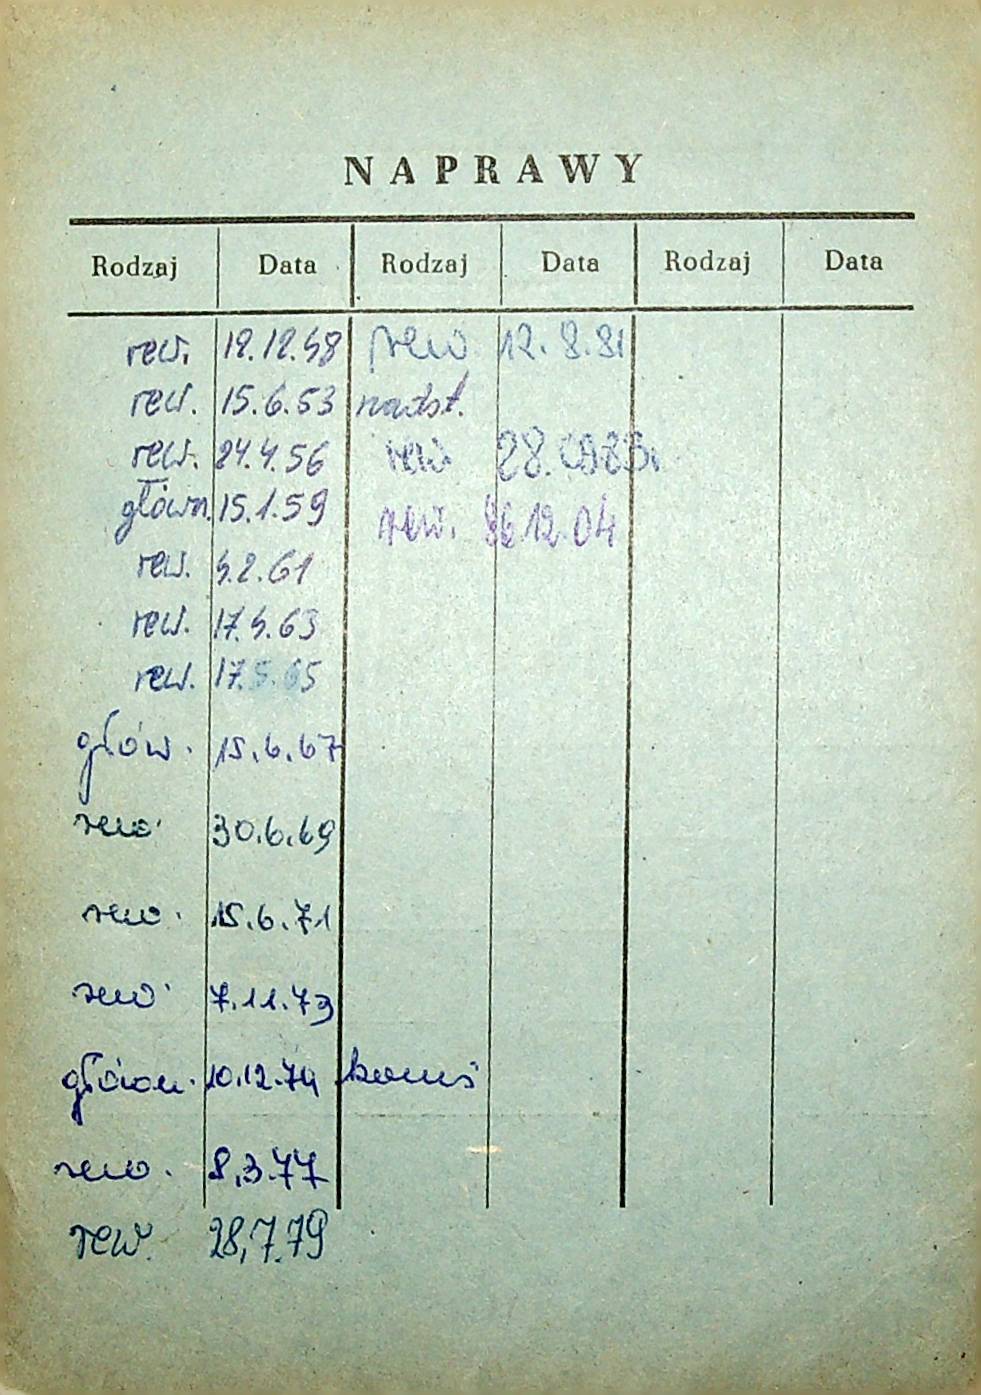 NAPRAWY
Rodzaj Data Rodzaj Data Rodzaj Data
rew. 12.12.48 rew 12.8.81
rew. 15.6.53 nadst.
rew. 24.4.56 rew
główn. 15.1.59 rew. 86.12.04
rew. 5.2.61
rew. 17.5.63
rew. 17.5.65
głów. 15.6.67
rew. 30.6.69
rew. 15.6.71
rew. 7.11.73
główn. 10.12.74
rew. 8.3.77
rew. 28.7.79